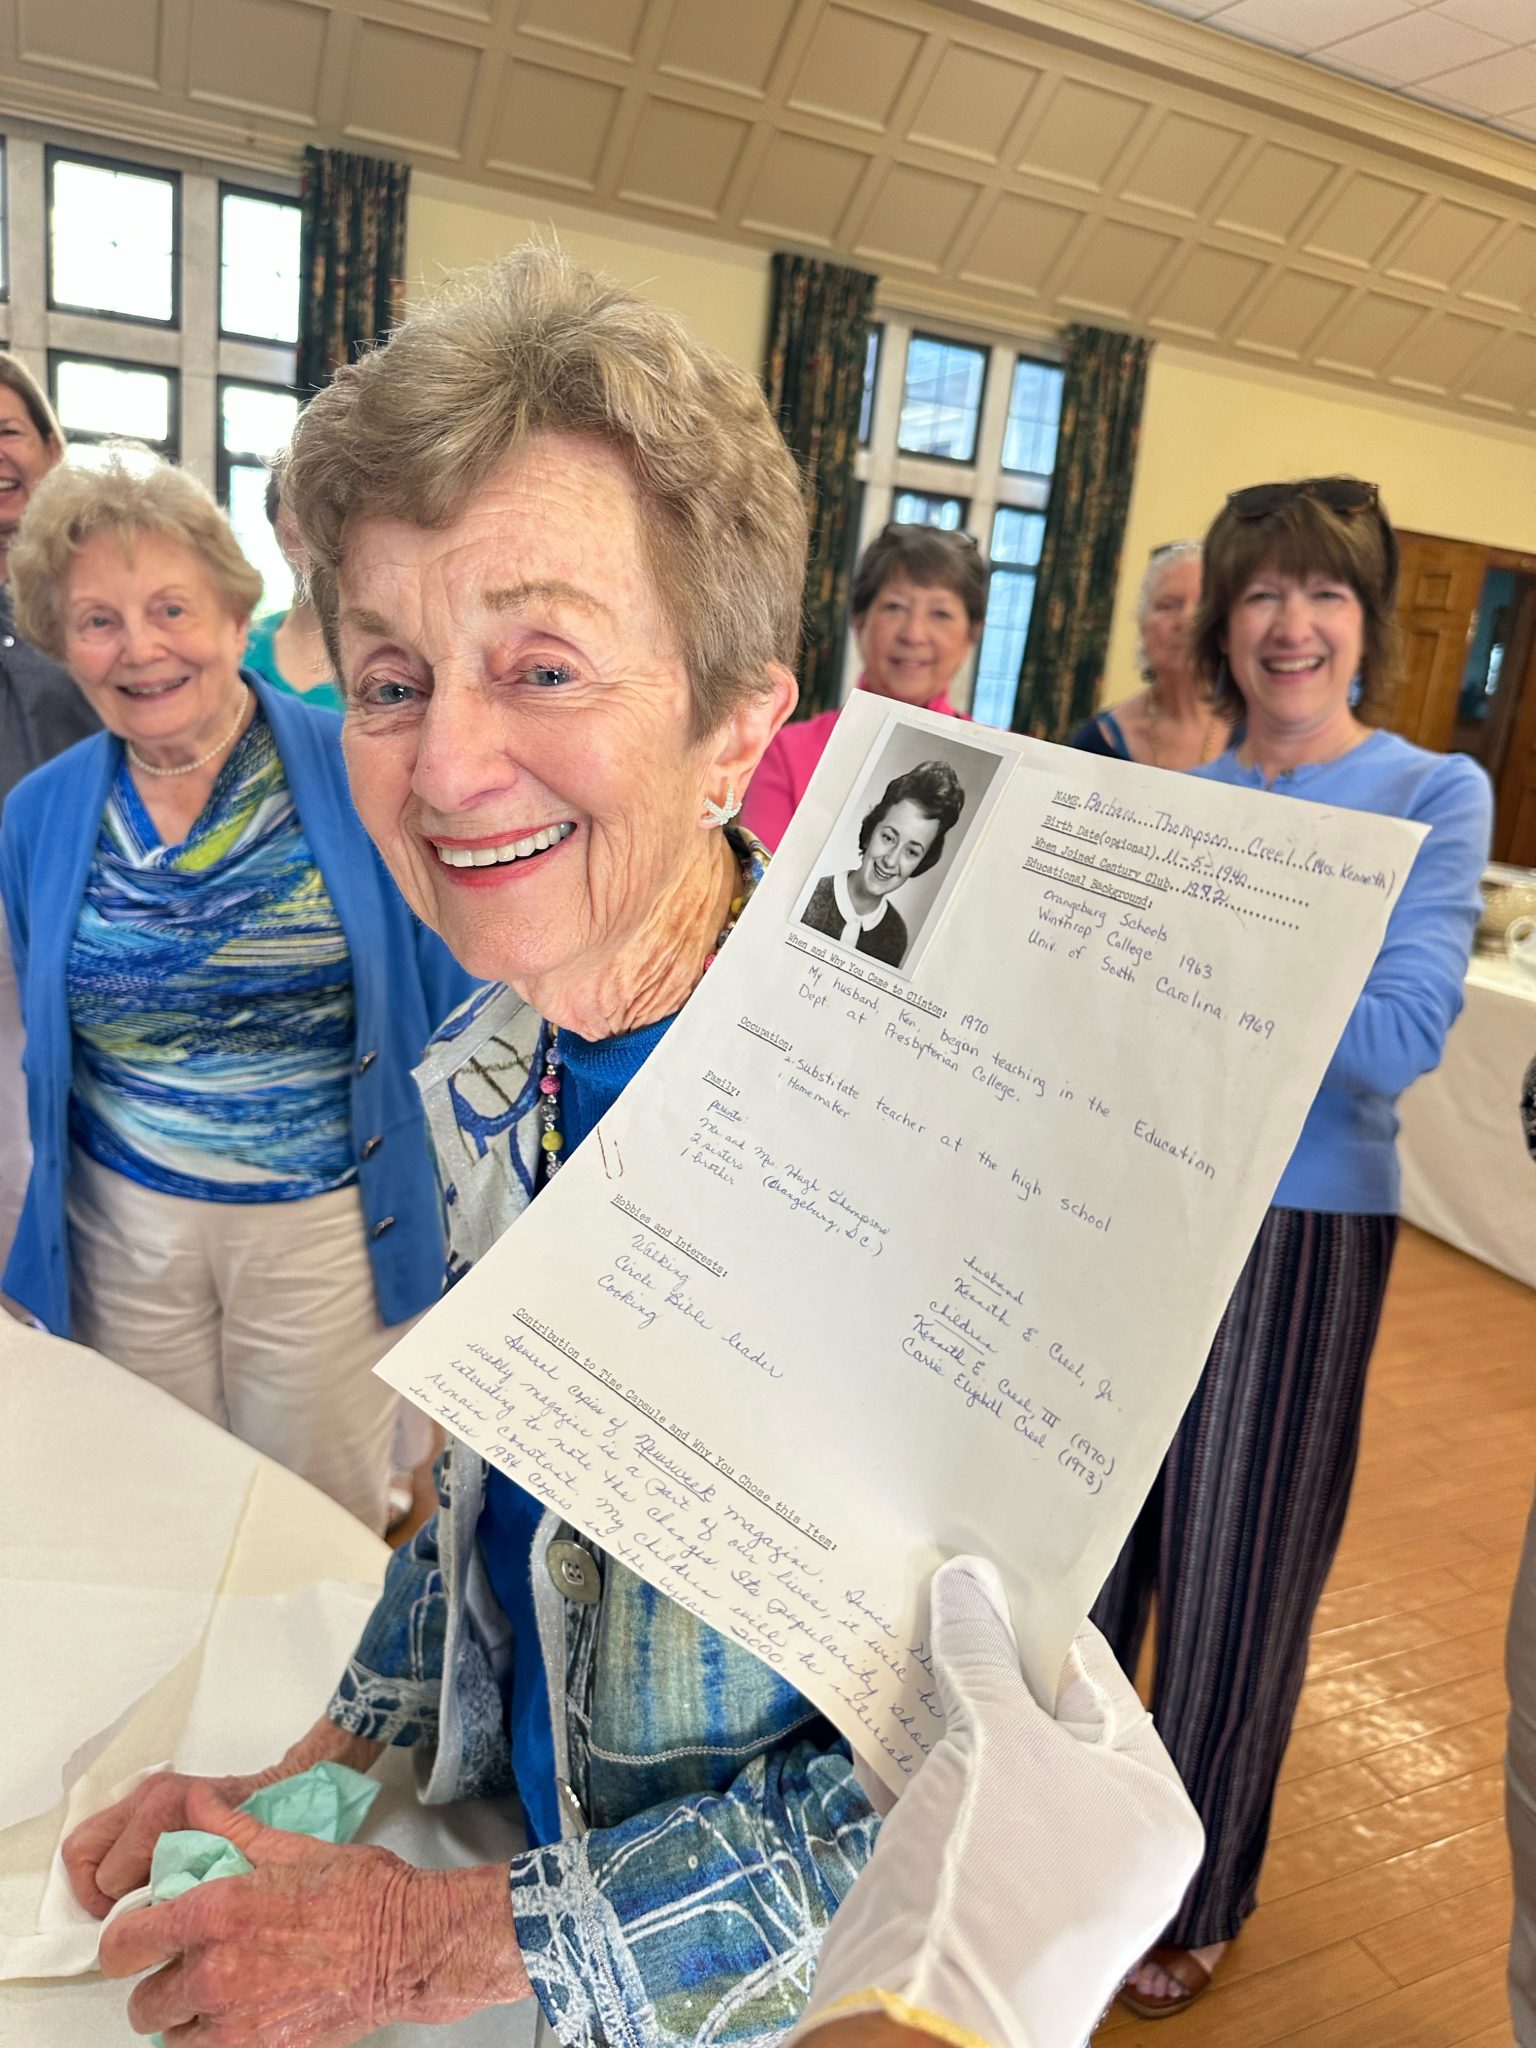 NAME. Barbara....Thompson....Creel...(Mrs. Kenneth)
Birth Date(optional)..11-5-1940...........
When Joined Century Club..1972..............
Educational Background:
Orangeburg Schools
Winthrop College 1963
Univ. of South Carolina 1969
When and Why You Came to Clinton: 1970
My husband, Ken, began teaching in the Education
Dept. at Presbyterian College.
Occupation:
2. Substitute teacher at the high school
1. Homemaker
Family:
parents:
Mr. and Mrs. Hugh Thompson
2 sisters (Orangeburg, S.C.)
1 brother
husband
Kenneth E. Creel, Jr.
children
Kenneth E. Creel, III (1970)
Carrie Elizabeth Creel (1973)
Hobbies and Interests:
Walking
Circle Bible leader
Cooking
Contribution to Time Capsule and Why You Chose this Item:
Several copies of Newsweek magazine. Since the
weekly magazine is a part of our lives, it will be
interesting to note the changes. Its popularity should
remain constant. My children will be interested
in these 1984 copies in the year 2000.